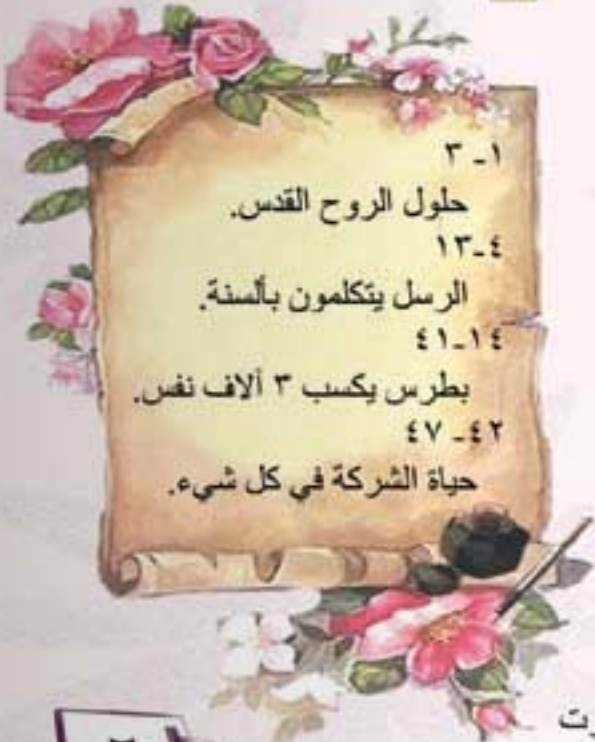 ١- ٣
حلول الروح القدس.
٤-١٣
الرسل يتكلمون بألسنة.
١٤-٤١
بطرس يكسب ٣ ألاف نفس.
٤٢- ٤٧
حياة الشركة في كل شيء.